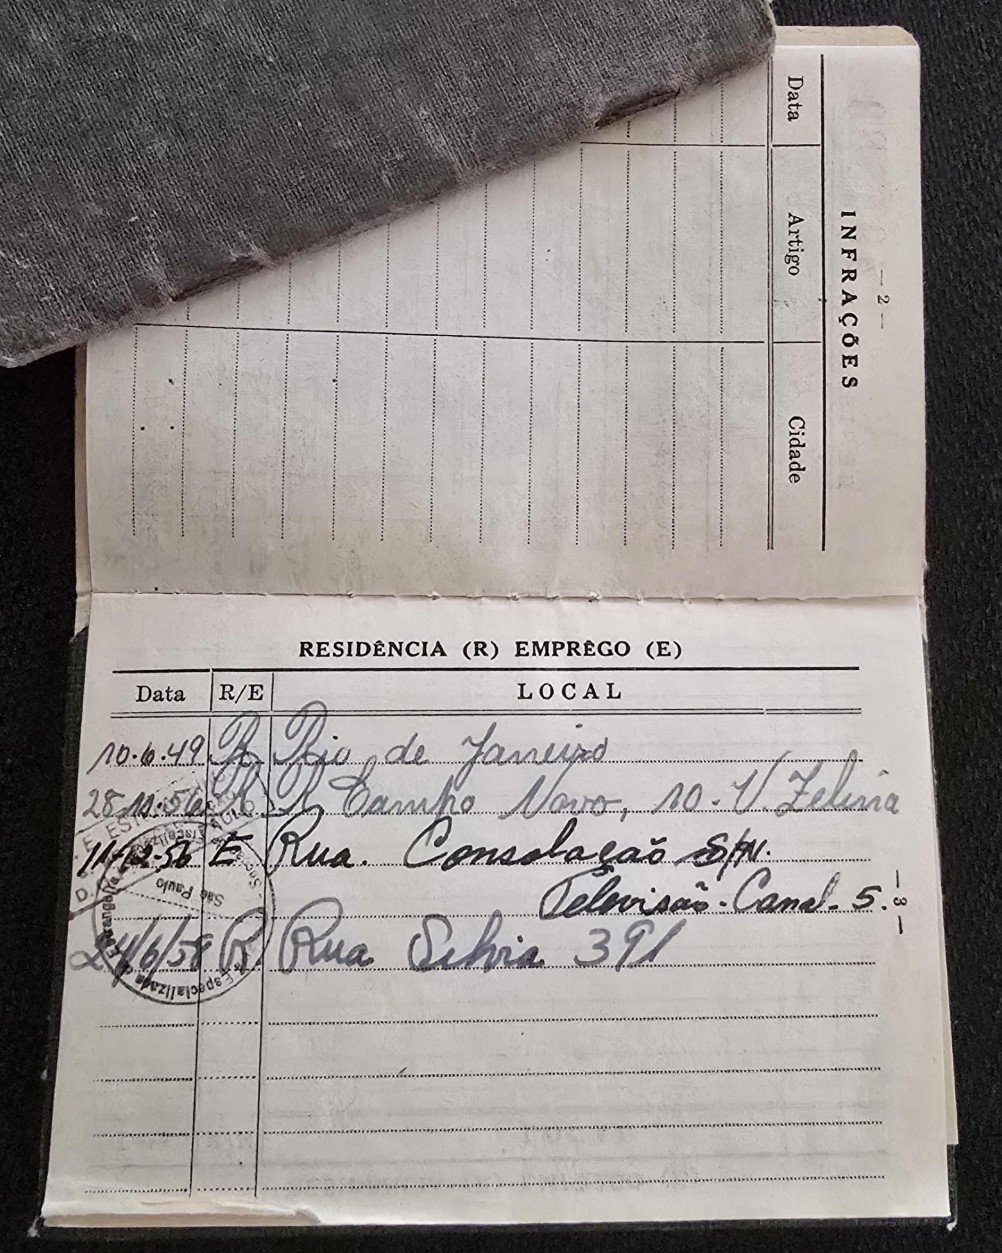 — 2 —
INFRAÇÕES
Data Artigo Cidade
RESIDÊNCIA (R) EMPRÊGO (E)
Data R/E LOCAL
10.6.49 R Rio de Janeiro
28.11.56 R R Campo Novo, 10 - V. Zelina
11-12-56 E Rua. Consolação S/N.
Televisão - Canal - 5.
— 3 —
24/6/58 R Rua Silvia 391
São Paulo
Especializada de